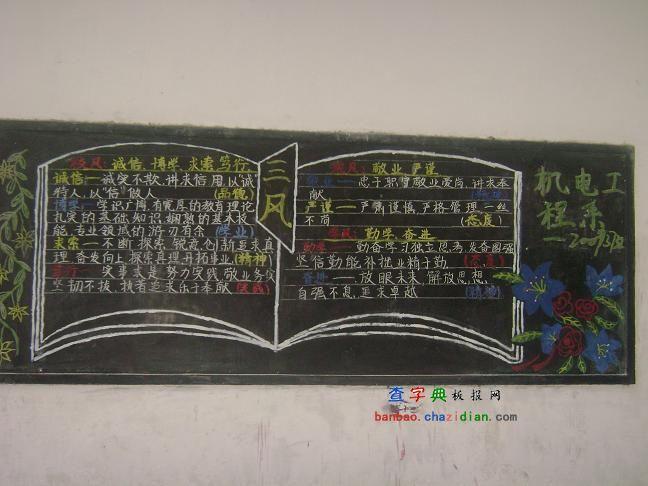 校风：诚信 博学 求索 笃行
诚信——诚实不欺，讲求信用，以“诚”
待人，以“信”做人 (品德)
博学——学识广博，有宽厚的教育理论
扎实的基础知识，娴熟的基本技
能，专业领域的游刃有余 (学业)
求索——不断探索，锐意创新追求真
理，奋发向上，探索真理，开拓事业(精神)
笃行——实事求是，努力实践，敬业务实
坚韧不拔，执着追求乐于奉献(实践)
三风
教风：敬业 严谨
敬业——忠于职守敬业爱岗，讲求奉
献
严谨——严肃谨慎，严格管理一丝
不苟 (态度)
学风：勤学 奋进
勤学——勤奋学习独立思考，发奋图强
坚信勤能补拙业精于勤 (态度)
奋进——放眼未来，解放思想，
自强不息，追求卓越 (精神)
机电工
程系
查字典板报网
banbao.chazidian.com